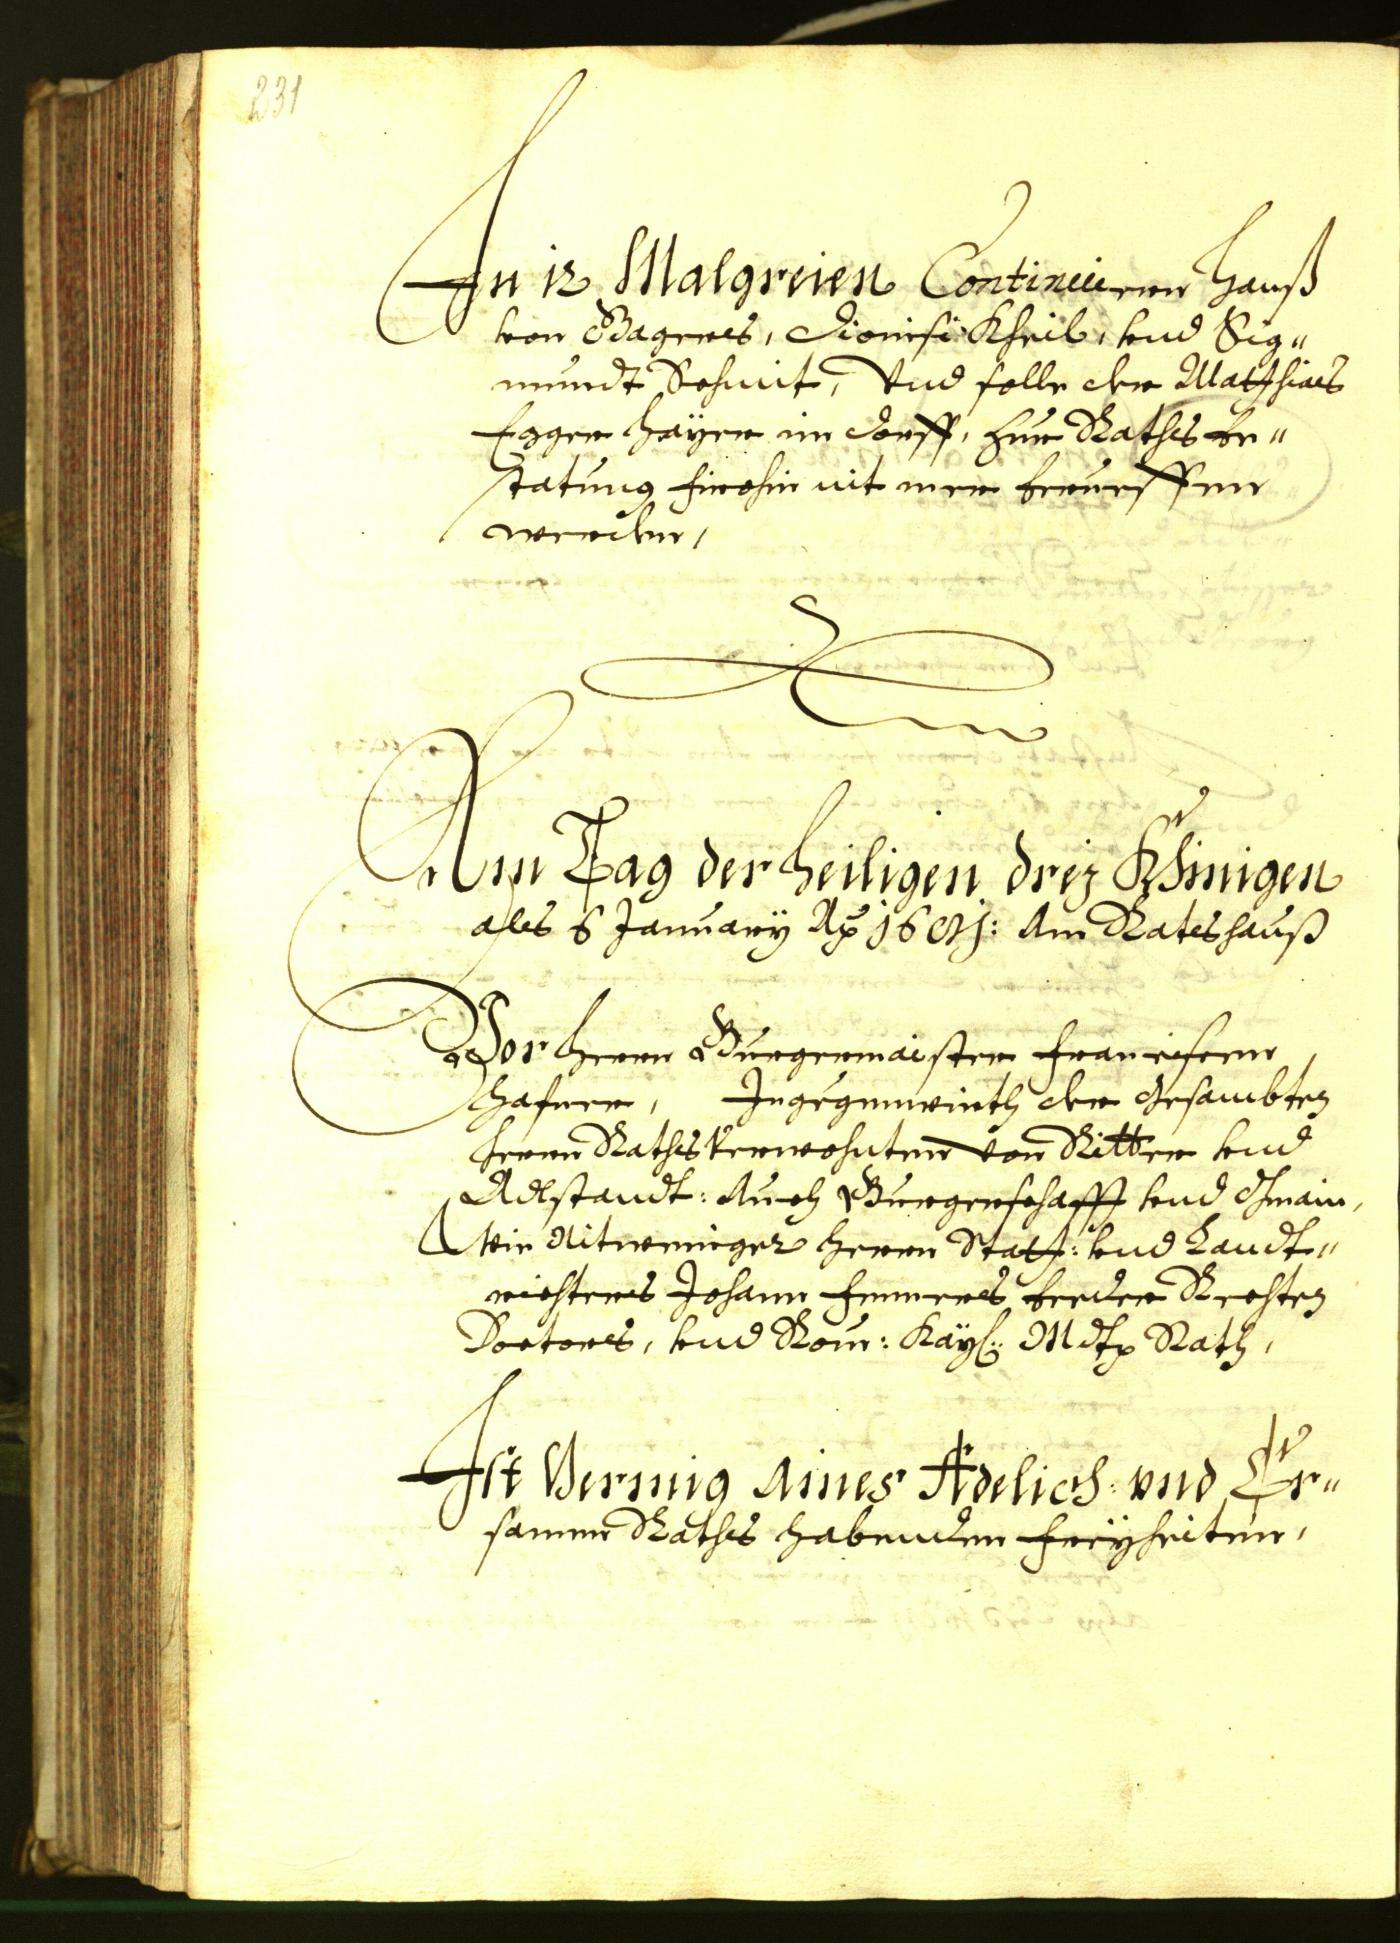 231
In 12 Malgreien Continuieren Hanß
von Wagners, Dionisi Kheil, vnd Sig„
mundt Schmit, Vnd solle der Matthias
Egger Mayer im Dorff, zur Raths be„
statung firohin nit mer berueffen
werden,
Am Tag der heiligen dreÿ Khinigen
als 6 January Aō 16 : Am Rateshauß
Vor herrn Burgermaister Francisceen
Hafner, Ingegenwirth der Gesambten
herrn Raths Verwohnten von Ritter vnd
Adlstandt: Auch Burgerschafft vnd Gmain,
wie Nitweniger herrn Statt: vnd Landt„
richters Johann Emmers beeder Rechten
Doctores, vnd Röm: Kaÿs: Mdt Rath,
Ist Vermig Aines Adelich: vnd Er„
samen Raths habenden Freÿheiten,